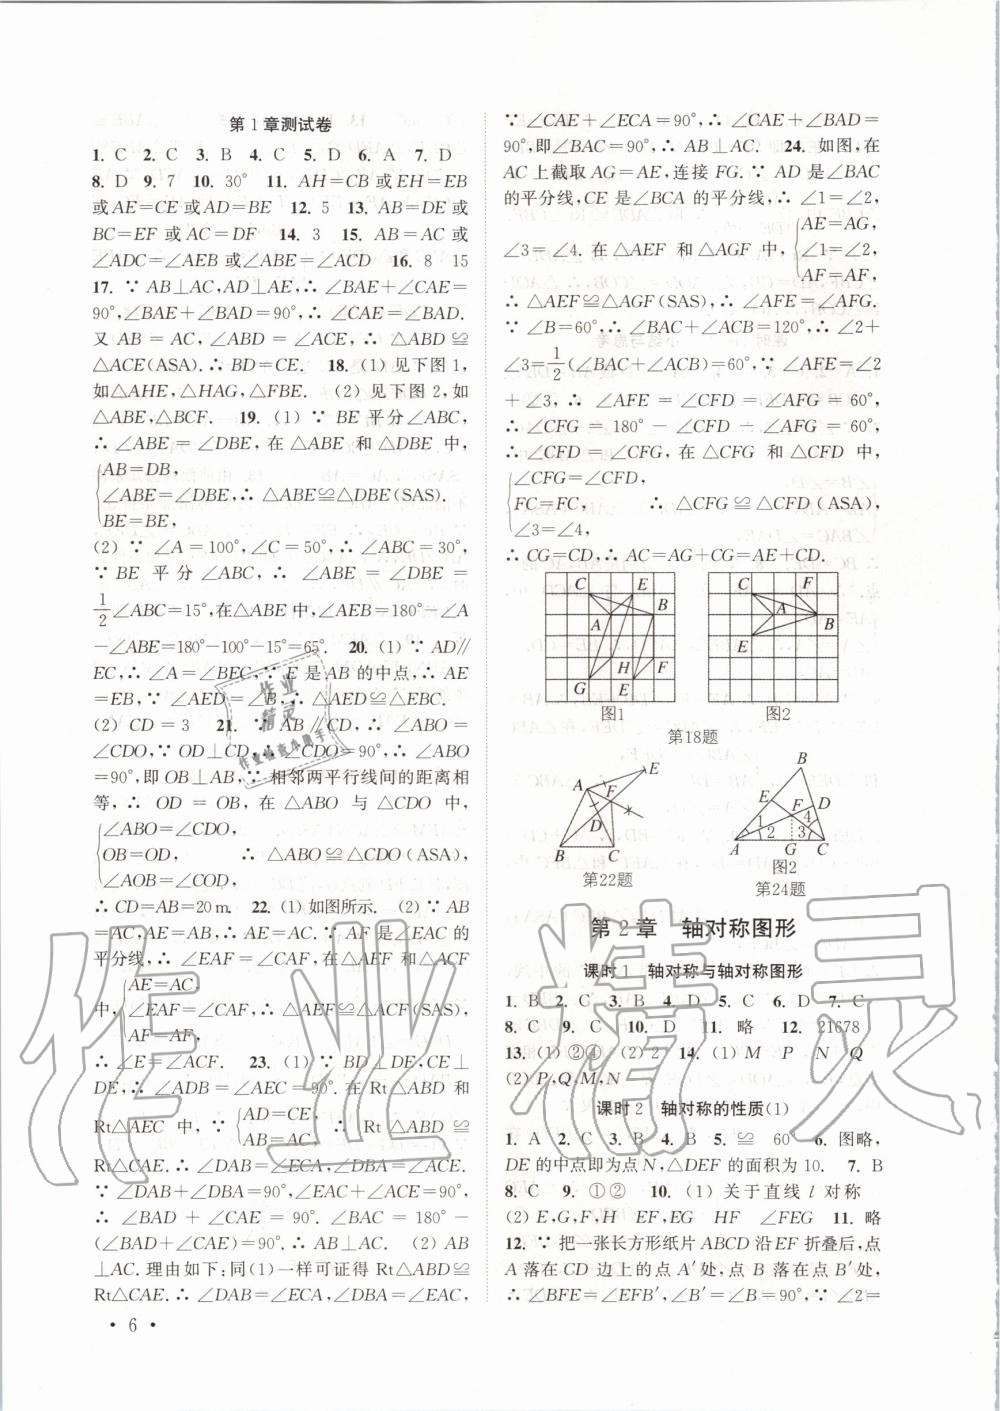 第1章测试卷
1. C 2. C 3. B 4. C 5. D 6. A 7. D
8. D 9. 7 10. 30° 11. AH=CB或EH=EB
或AE=CE或AD=BE 12. 5 13. AB=DE或
BC=EF或AC=DF 14. 3 15. AB=AC或
∠ADC=∠AEB或∠ABE=∠ACD 16. 8 15
17. ∵ AB⊥AC,AD⊥AE,∴ ∠BAE+∠CAE=
90°,∠BAE+∠BAD=90°,∴ ∠CAE=∠BAD.
又 AB = AC, ∠ABD = ∠ACE, ∴ △ABD ≌
△ACE(ASA).∴ BD=CE. 18. (1) 见下图1,
如△AHE,△HAG,△FBE. (2) 见下图2,如
△ABE,△BCF. 19. (1) ∵ BE 平分∠ABC,
∴ ∠ABE=∠DBE,在△ABE 和△DBE 中,
AB=DB,
∠ABE=∠DBE,∴ △ABE≌△DBE(SAS).
BE=BE,
(2) ∵ ∠A=100°,∠C=50°,∴ ∠ABC=30°,
∵ BE 平分 ∠ABC, ∴ ∠ABE = ∠DBE =
1/2∠ABC=15°,在△ABE中,∠AEB=180°-∠A
-∠ABE=180°-100°-15°=65°. 20. (1) ∵ AD∥
EC,∴ ∠A=∠BEC,∵ E 是 AB 的中点,∴ AE
=EB,∵ ∠AED=∠B,∴ △AED≌△EBC.
(2) CD=3 21. ∵ AB∥CD,∴ ∠ABO=
∠CDO,∵ OD⊥CD,∴ ∠CDO=90°,∴ ∠ABO
=90°,即OB⊥AB,∵ 相邻两平行线间的距离相
等,∴ OD = OB, 在 △ABO 与 △CDO 中,
∠ABO=∠CDO,
OB=OD, ∴ △ABO ≌ △CDO(ASA),
∠AOB=∠COD,
∴ CD=AB=20 m. 22. (1) 如图所示. (2) ∵ AB
=AC,AE=AB,∴ AE=AC.∵ AF是∠EAC的
平分线,∴ ∠EAF=∠CAF.在△AEF和△ACF
AE=AC,
中,∠EAF=∠CAF,∴ △AEF≌△ACF(SAS).
AF=AF,
∴ ∠E=∠ACF. 23. (1) ∵ BD⊥DE,CE⊥
DE,∴ ∠ADB=∠AEC=90°.在Rt△ABD和
Rt△AEC中,∵ AD=CE,
AB=AC, ∴ Rt△ABD≌
Rt△CAE.∴ ∠DAB=∠ECA,∠DBA=∠EAC.
∵ ∠DAB+∠DBA=90°,∠EAC+∠ACE=90°,
∴ ∠BAD + ∠CAE = 90°. ∠BAC = 180° -
(∠BAD+∠CAE)=90°.∴ AB⊥AC. (2) AB⊥
AC.理由如下:同(1)一样可证得Rt△ABD≌
Rt△CAE.∴ ∠DAB=∠ECA,∠DBA=∠EAC,
• 6 •
∵ ∠CAE+∠ECA=90°,∴ ∠CAE+∠BAD=
90°,即∠BAC=90°,∴ AB⊥AC. 24. 如图,在
AC上截取AG=AE,连接FG.∵ AD是∠BAC
的平分线,CE是∠BCA的平分线,∴ ∠1=∠2,
AE=AG,
∠3=∠4.在△AEF和△AGF中,∠1=∠2,
AF=AF,
∴ △AEF≌△AGF(SAS),∴ ∠AFE=∠AFG.
∵ ∠B=60°,∴ ∠BAC+∠ACB=120°,∴ ∠2+
∠3=1/2(∠BAC+∠ACB)=60°,∵ ∠AFE=∠2
+∠3, ∴ ∠AFE = ∠CFD = ∠AFG = 60°,
∴ ∠CFG = 180° - ∠CFD - ∠AFG = 60°,
∴ ∠CFD = ∠CFG,在△CFG 和△CFD 中,
∠CFG=∠CFD,
FC=FC, ∴ △CFG≌△CFD(ASA),
∠3=∠4,
∴ CG=CD,∴ AC=AG+CG=AE+CD.
C E
B
A
H F
G E
图1
C F
A
B
E
图2
第18题
E
A F
D
B C
第22题
B
E D
F
1 2 4 3
A G C
图2
第24题
第2章 轴对称图形
课时1 轴对称与轴对称图形
1. B 2. C 3. B 4. D 5. C 6. D 7. C
8. C 9. C 10. D 11. 略 12. 21678
13. (1) ②④ (2) 2 14. (1) M P N Q
(2) P,Q,M,N
课时2 轴对称的性质(1)
1. A 2. C 3. B 4. B 5. ≌ 60° 6. 图略,
DE的中点即为点N,△DEF的面积为10. 7. B
8. C 9. ①② 10. (1) 关于直线 l 对称
(2) E,G,F,H EF,EG HF ∠FEG 11. 略
12. ∵ 把一张长方形纸片ABCD沿EF折叠后,点
A落在CD边上的点A′处,点B落在点B′处,
∴ ∠BFE=∠EFB′,∠B′=∠B=90°,∵ ∠2=
作业精灵